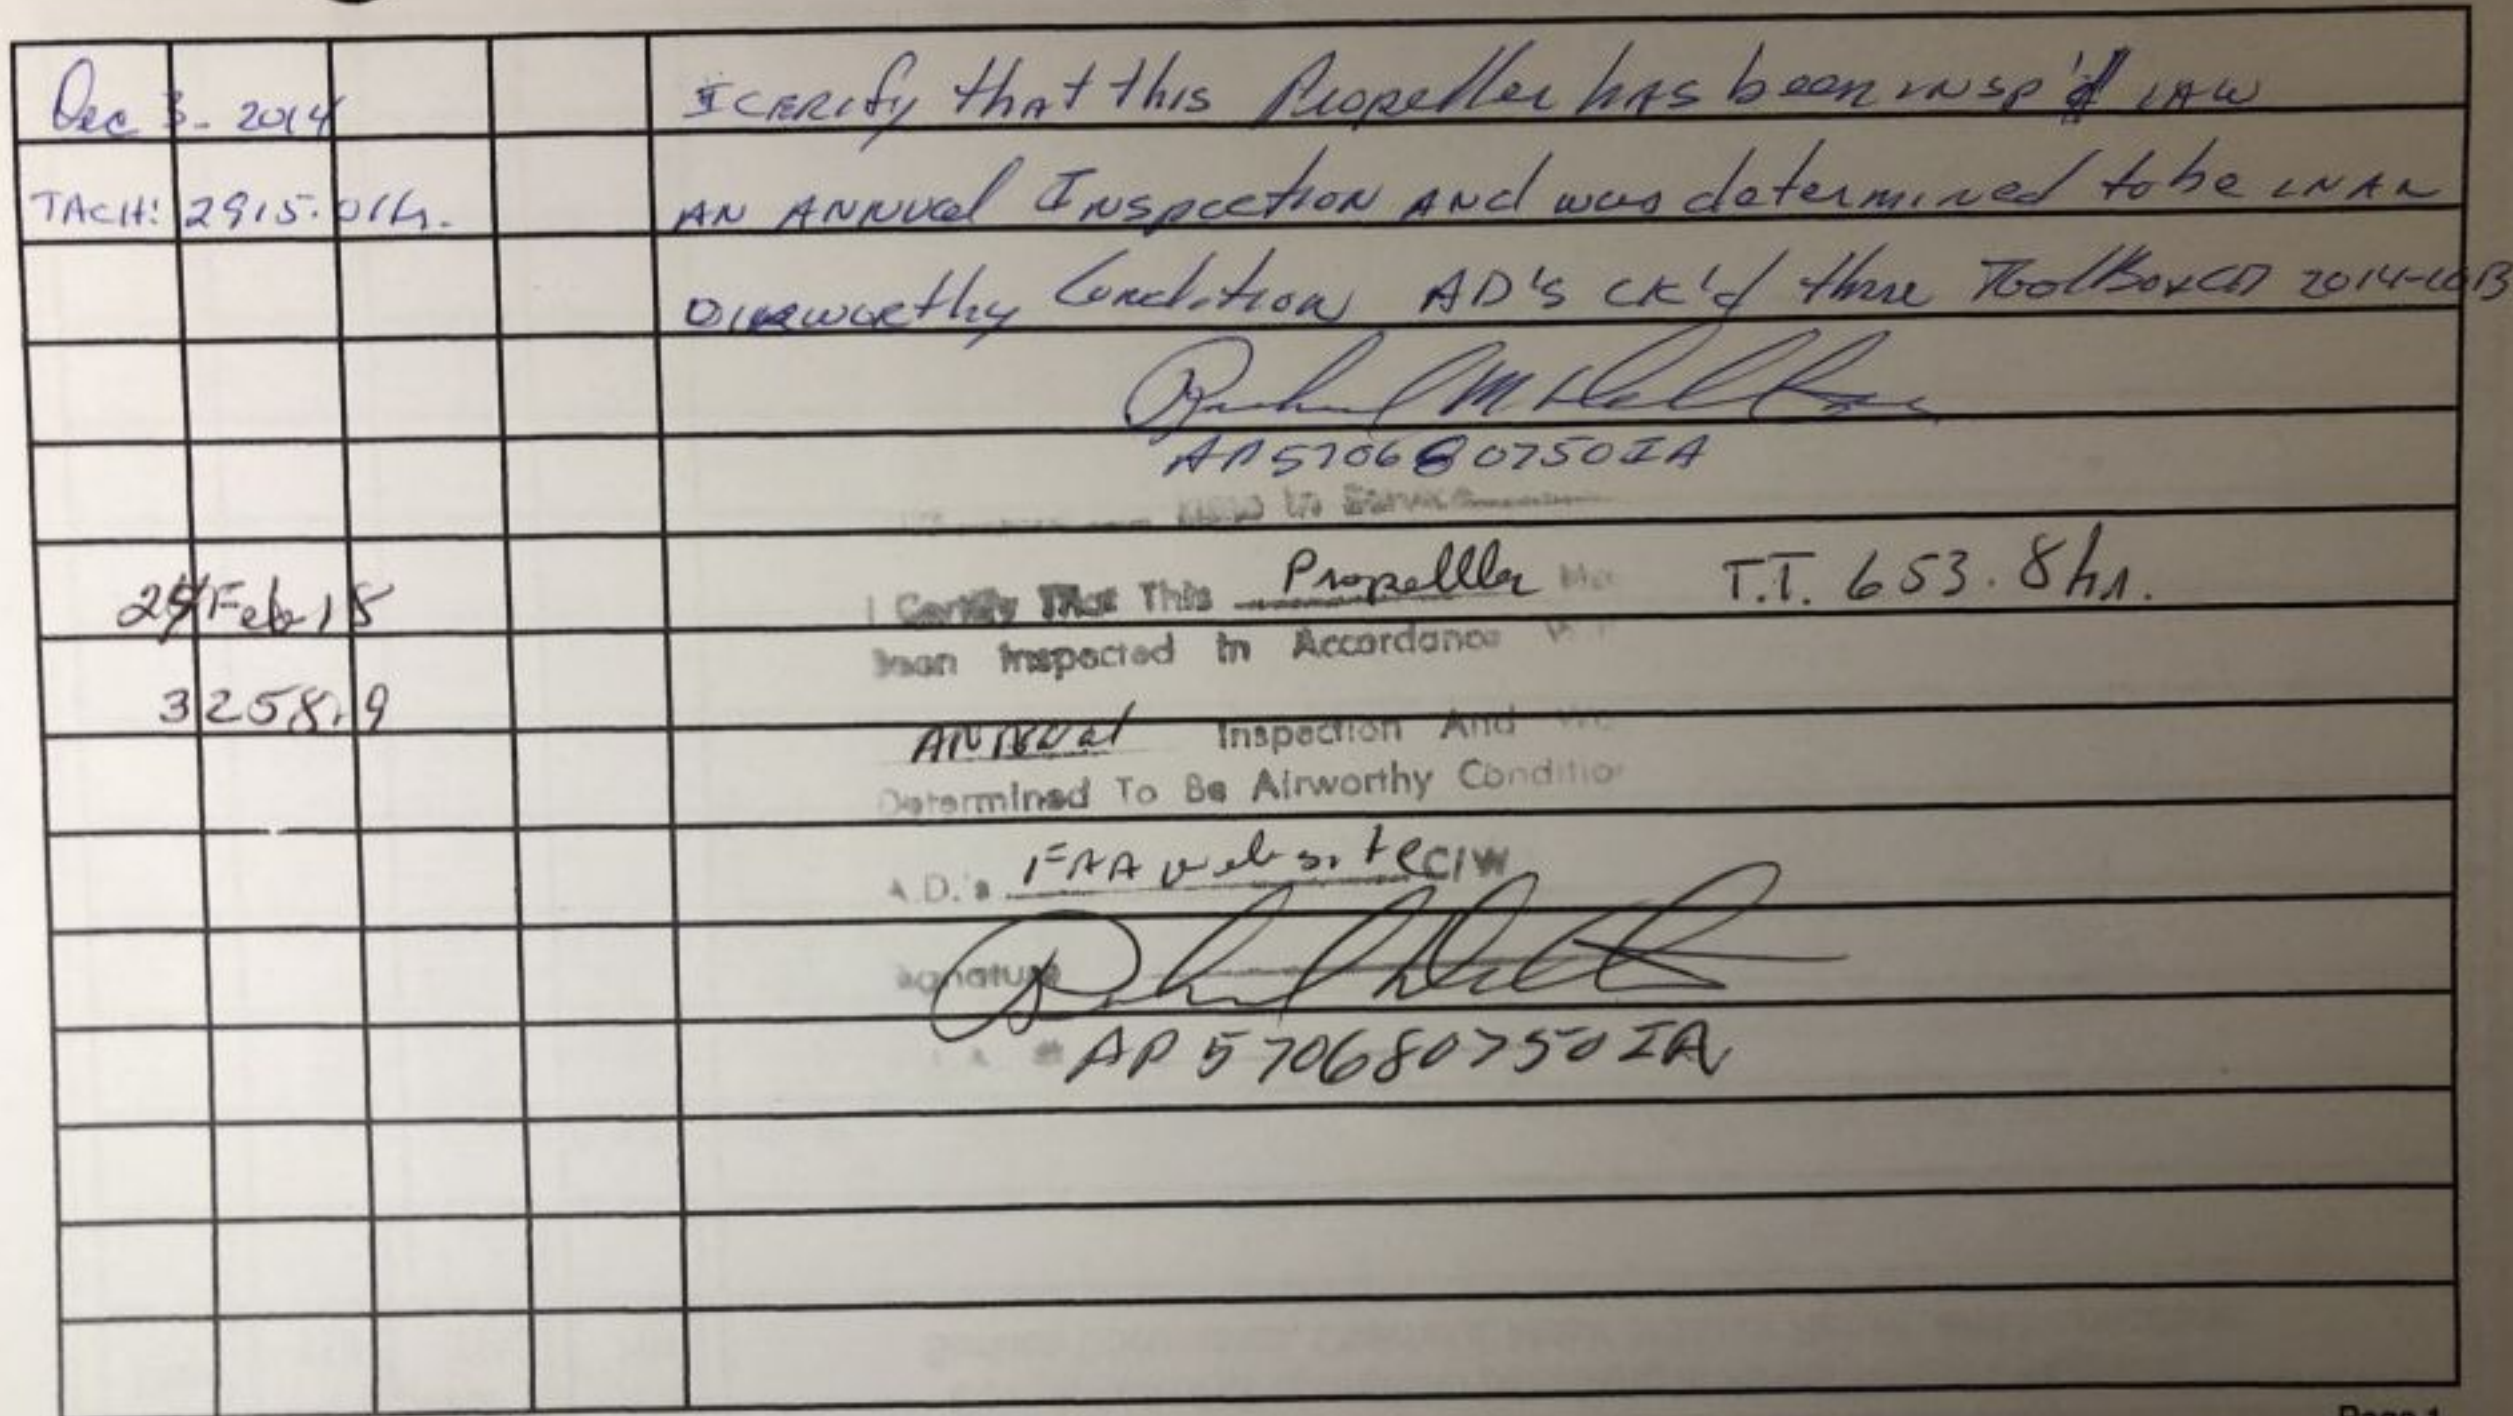 Dec 3. 2014 I CERIfy that this Propeller has been insp'd IAW
TACH: 2915.0 Hr. AN ANNUAL Inspection AND was determined to be IN AN
airworthy Condition AD'S CK'd thru ToolBox CD 2014-
AP570680750IA
In Service
24 Feb 18 I Certify That This Propelller Has T.T. 653.8 hr.
been Inspected In Accordance
3258.9
ANNUAL Inspection And
Determined To Be Airworthy Condition
A.D.'s FAA website C/W
Signature
AP 570680750IA
Page 1